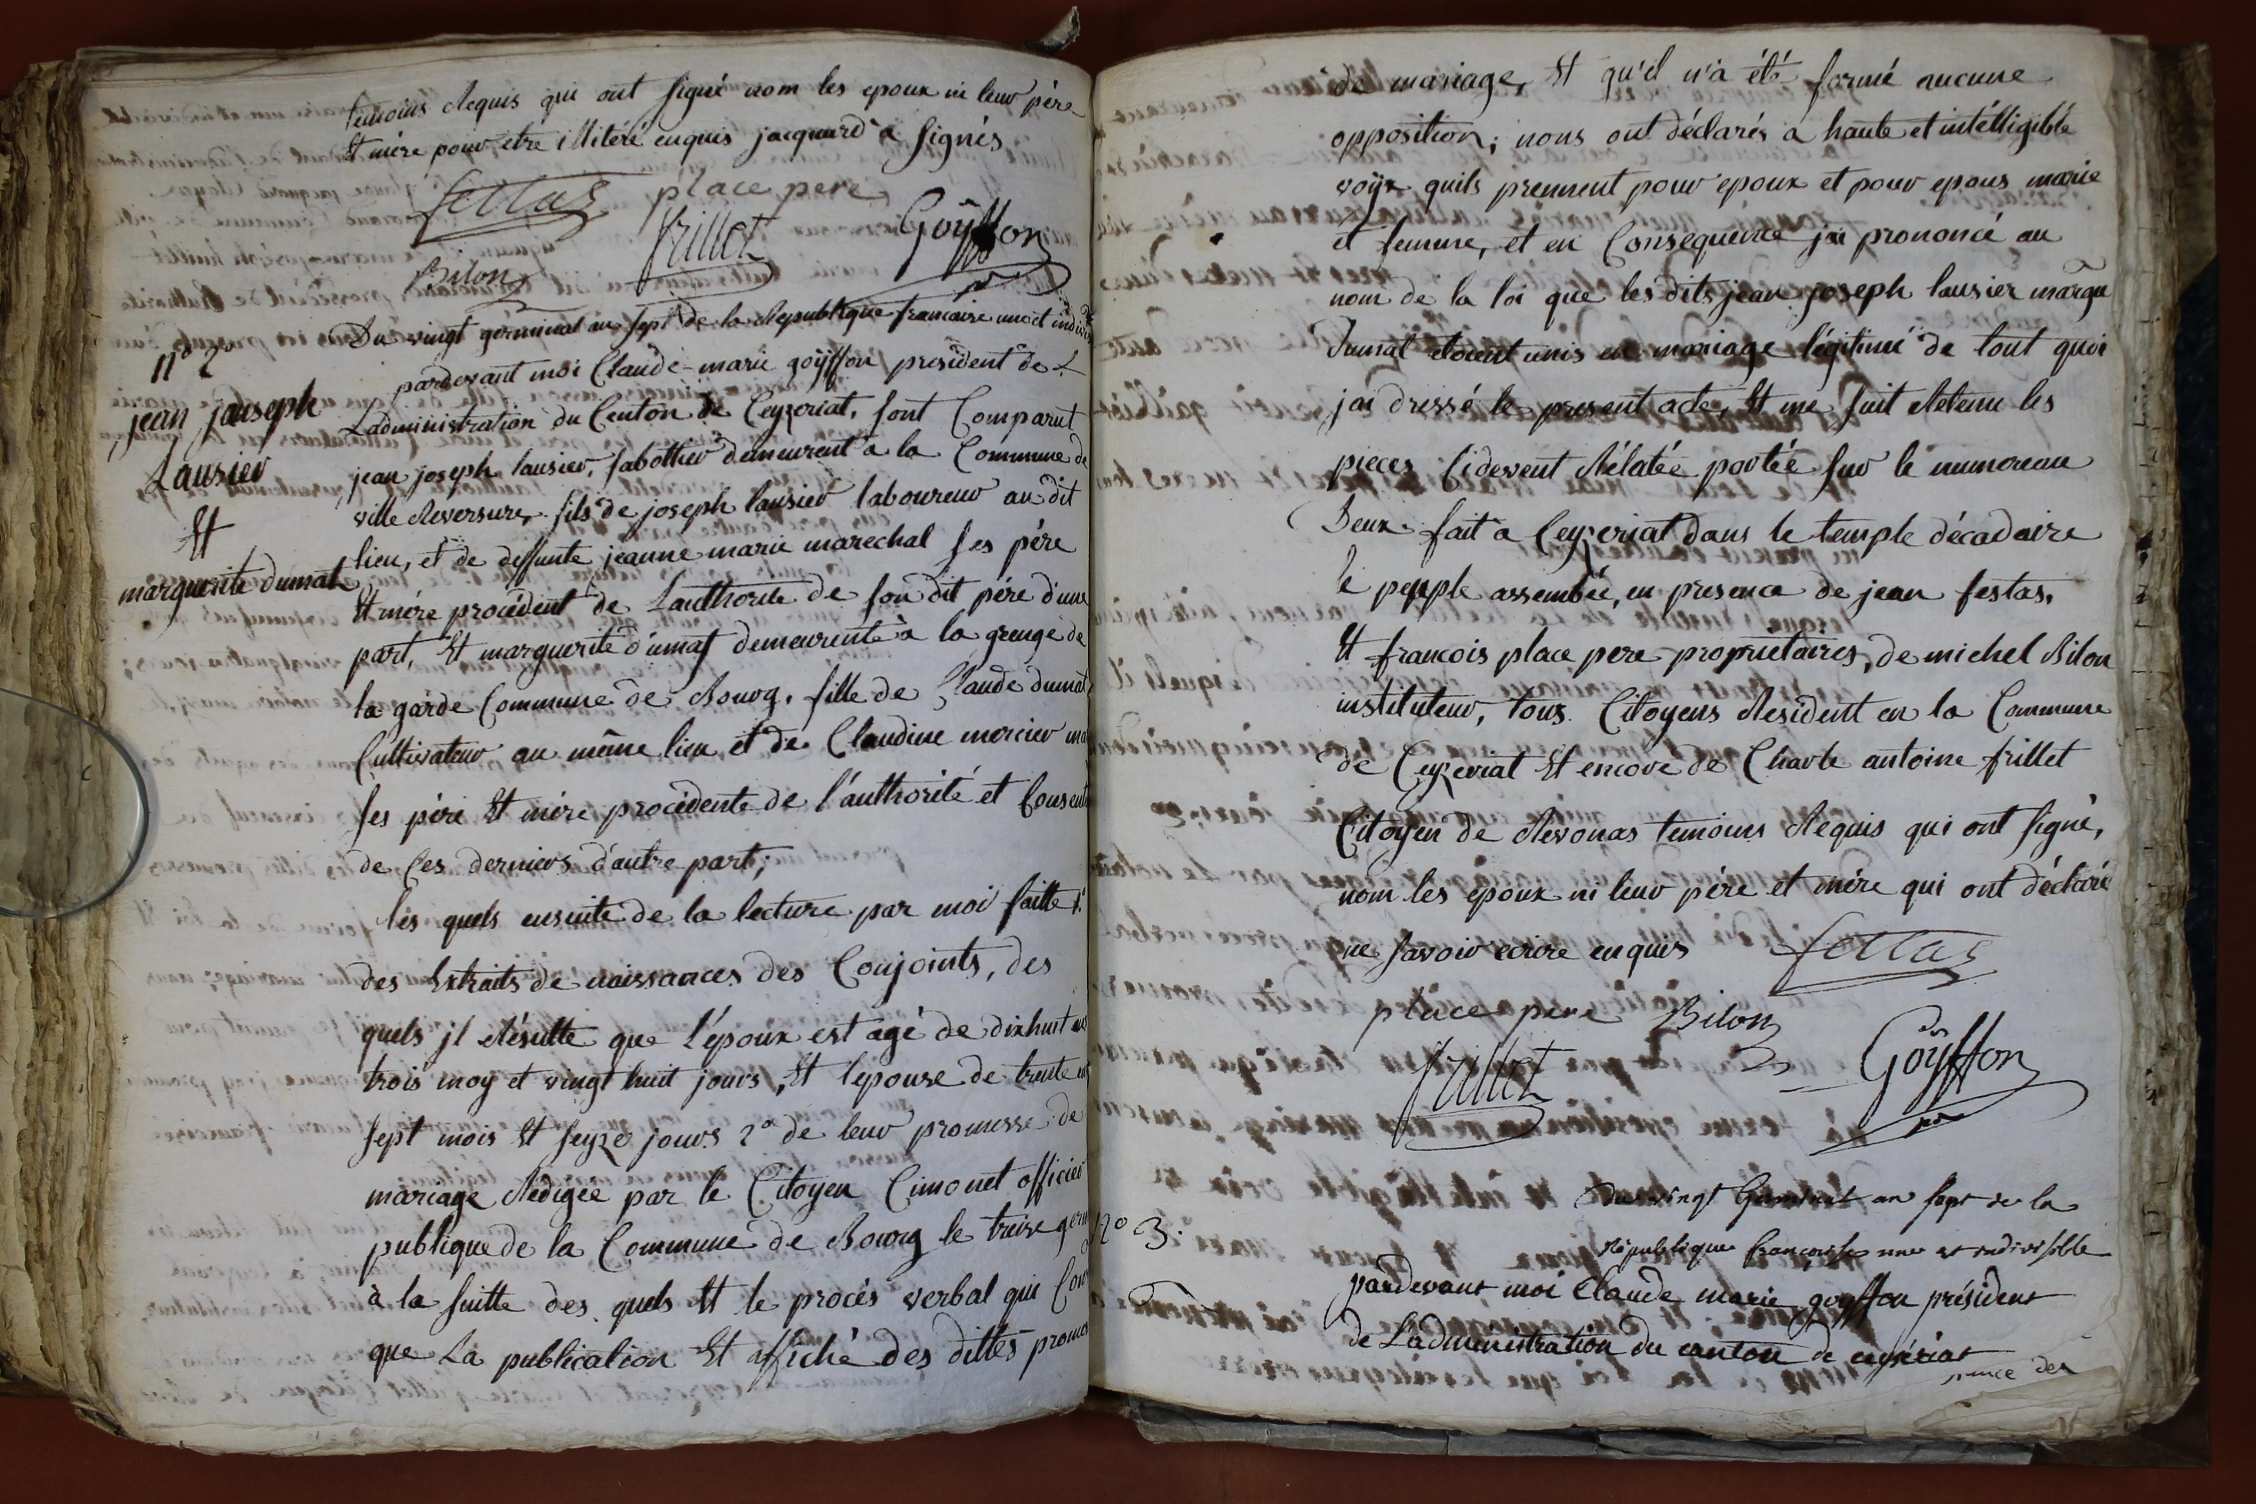 temoins Requis qui ont signé nom les epoux ni leur pére
Et mére pour etre illitéré enquis jacquard a signés
festas place pere
frillet Goÿffon
Bilon
Du vingt germinal an sept de la Republique francaire une et indivi
n° 2°
pardevant moi Claude-marie goÿffon president de L
Ladministration du Centon de Ceyzeriat, sont Comparut
jean jauseph
Lausier
Et
marguerite dumat
jean joseph lausier, sabottier demeurent a la Commune de
ville Reversure, fils de joseph lausier laboureur au dit
lieu, et de deffunte jeanne marie marechal ses pére
Et mére procédent de Lauthorité de son dit pére d'une
part, Et marguerite dumat demeurente à la grenge de
la garde Commune de Bourg, fille de Claude dumat
Cultivateur au même lieu et de Claudine mercier
ses pére Et mére procédente de l'authorité et Consent
de Ces derniers d'autre part;
les quels ensuite de la lecture par moi faitte 1°
des Extraits de naissances des Conjoints, des
quels jl Résulte que l'époux est agé de dixhuit ans
trois moy et vingt huit jours, Et l'epouse de trente
sept mois Et seyze jours 2° de leur promesse de
mariage Rédigée par le Citoyen Cimonet officier
publique de la Commune de Bourg le treize germ
à la suitte des quels Et le procés verbal qui Con
que La publication Et affiché des dittes prome
de mariage, Et qu'il n'a été formé aucune
opposition; nous ont déclarés a haute et intélligible
voÿx quils prennent pour epoux et pour epous marie
et femme, et en Consequence jai prononcé au
nom de la loi que les dits jean joseph lausier margu
Dumat etoient unis en mariage légitimé de tout quoi
jai dressé le present acte, Et me suit Retenu les
pieces Cidevent Rélatée portée sur le numoreau
Deux fait a Ceyzeriat dans le temple décadaire
le pepple assemblée, en presence de jean festas,
Et francois place pere proprietaires, de michel Bilon
instituteur, tous Citoyens Resident en la Commune
de Ceyzeriat Et encore de Charle antoine frillet
Citoyen de Revonas temoins Requis qui ont signé,
nom les epoux ni leur pére et mére qui ont déclaré
ne savoir ecrire enquis festas
place pere Bilon
frillet Goÿffon
Du vingt Germinal an sept de la
n° 3.
République françoise une et indivisible
pardevant moi Claude marie goyffon président
de L'administration du canton de ceyzériat